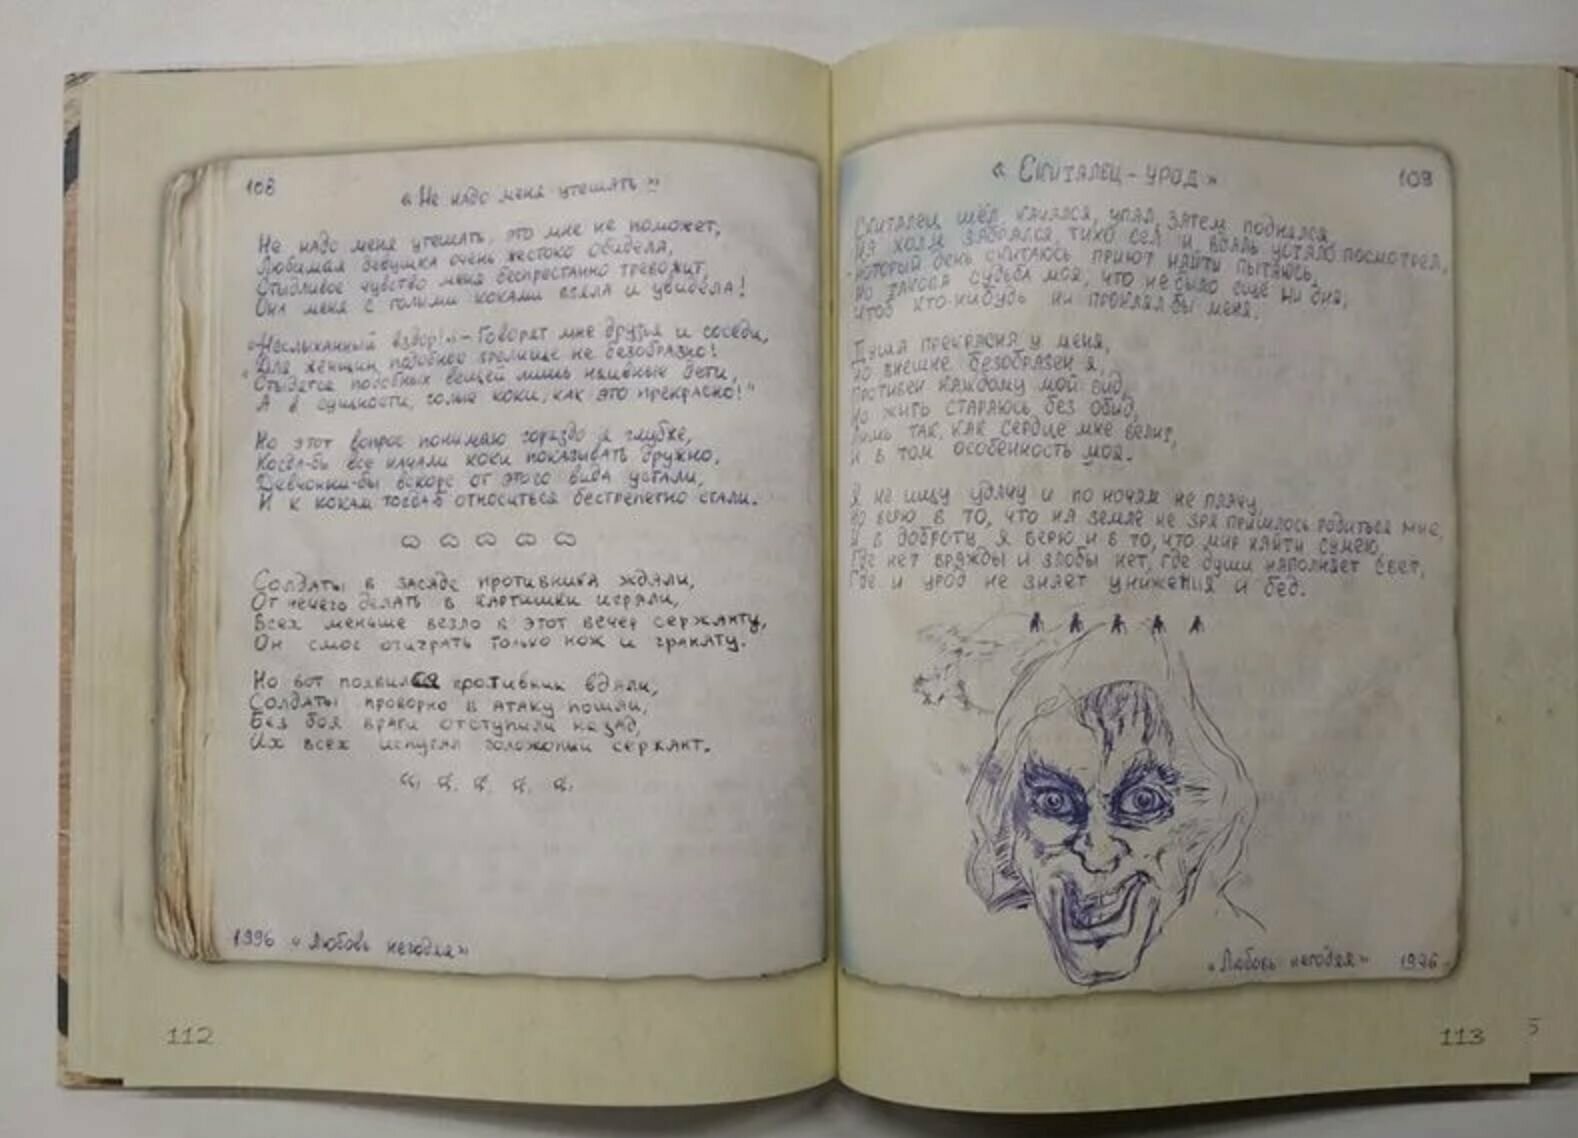 108
«Не надо меня утешать»
Не надо меня утешать, это мне не поможет,
Любимая девушка очень жестоко обидела,
Стыдливое чувство меня беспрестанно тревожит,
Она меня с голыми коками взяла и увидела!
«Неслыханный вздор!» - Говорят мне друзья и соседи,
"Для женщин подобное зрелище не безобразно!
Стыдятся подобных вещей лишь наивные дети,
А в сущности, голые коки, как это прекрасно!"
Но этот вопрос понимаю гораздо я глубже,
Когда-бы все начали коки показывать дружно,
Девчонки-бы вскоре от этого вида устали,
И к кокам тогда-б относиться бестрепетно стали.
Солдаты в засаде противника ждали,
От нечего делать в картишки играли,
Всех меньше везло в этот вечер сержанту,
Он смог отиграть только нож и гранату.
Но вот появился противник вдали,
Солдаты проворно в атаку пошли,
Без боя враги отступили назад,
Их всех испугал голожопый сержант.
1996 «Любовь негодяя»
112
«Скиталец-урод»
109
Скиталец шёл, качался, упал, затем поднялся,
На холм забрался, тихо сел и вдаль устало посмотрел,
-Который день скитаюсь приют найти пытаюсь,
Но такова судьба моя, что не было ещё ни дня,
Чтоб кто-нибудь ни проклял бы меня.
Душа прекрасна у меня,
Но внешне безобразен я,
Противен каждому мой вид,
Но жить стараюсь без обид,
Лишь так, как сердце мне велит,
И в том особенность моя.
Я не ищу удачу и по ночам не плачу,
Но верю в то, что на земле не зря пришлось родиться мне,
И в доброту я верю и в то, что мир найти сумею,
Где нет вражды и злобы нет, где души наполняет свет,
Где и урод не знает унижения и бед.
«Любовь негодяя» 1996
113
5